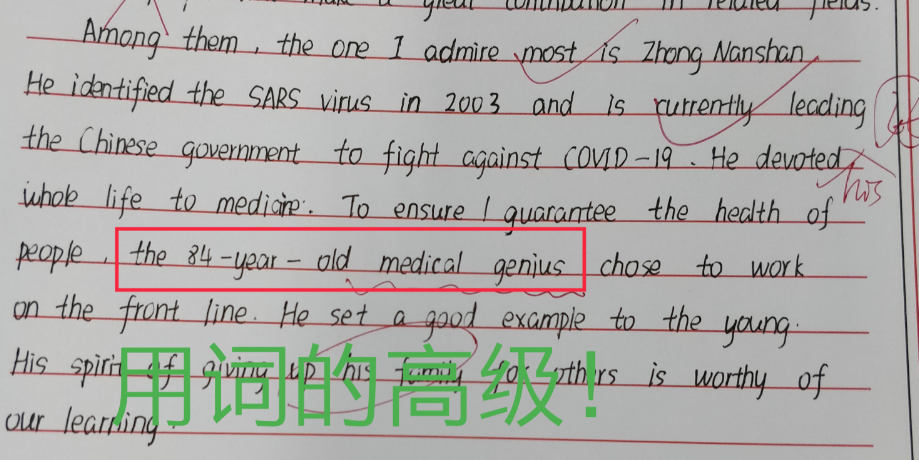 great contribution in related fields.
Among them, the one I admire most is Zhong Nanshan
He identified the SARS virus in 2003 and is currently leading
the Chinese government to fight against COVID-19. He devoted
his
whole life to medicine. To ensure / guarantee the health of
people, the 84-year-old medical genius chose to work
on the front line. He set a good example to the young.
His spirit of giving up his family for others is worthy of
our learning.
用词的高级!